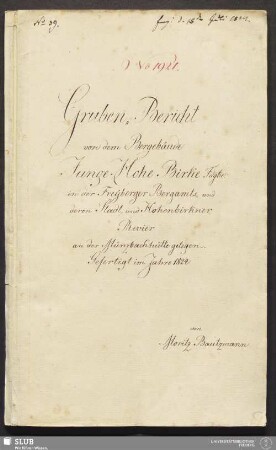 No 39.
Gruben-Bericht
von dem Berggebäude
Junge Hohe Birke Fdgr.
in der Freyberger Bergamts und
deren Stadt und Hohenbirkner
Revier
an der Münzbachhütte gelegen
Gefertigt im Jahre 1824
von
Moritz Bautzmann
SLUB
Wir führen Wissen.